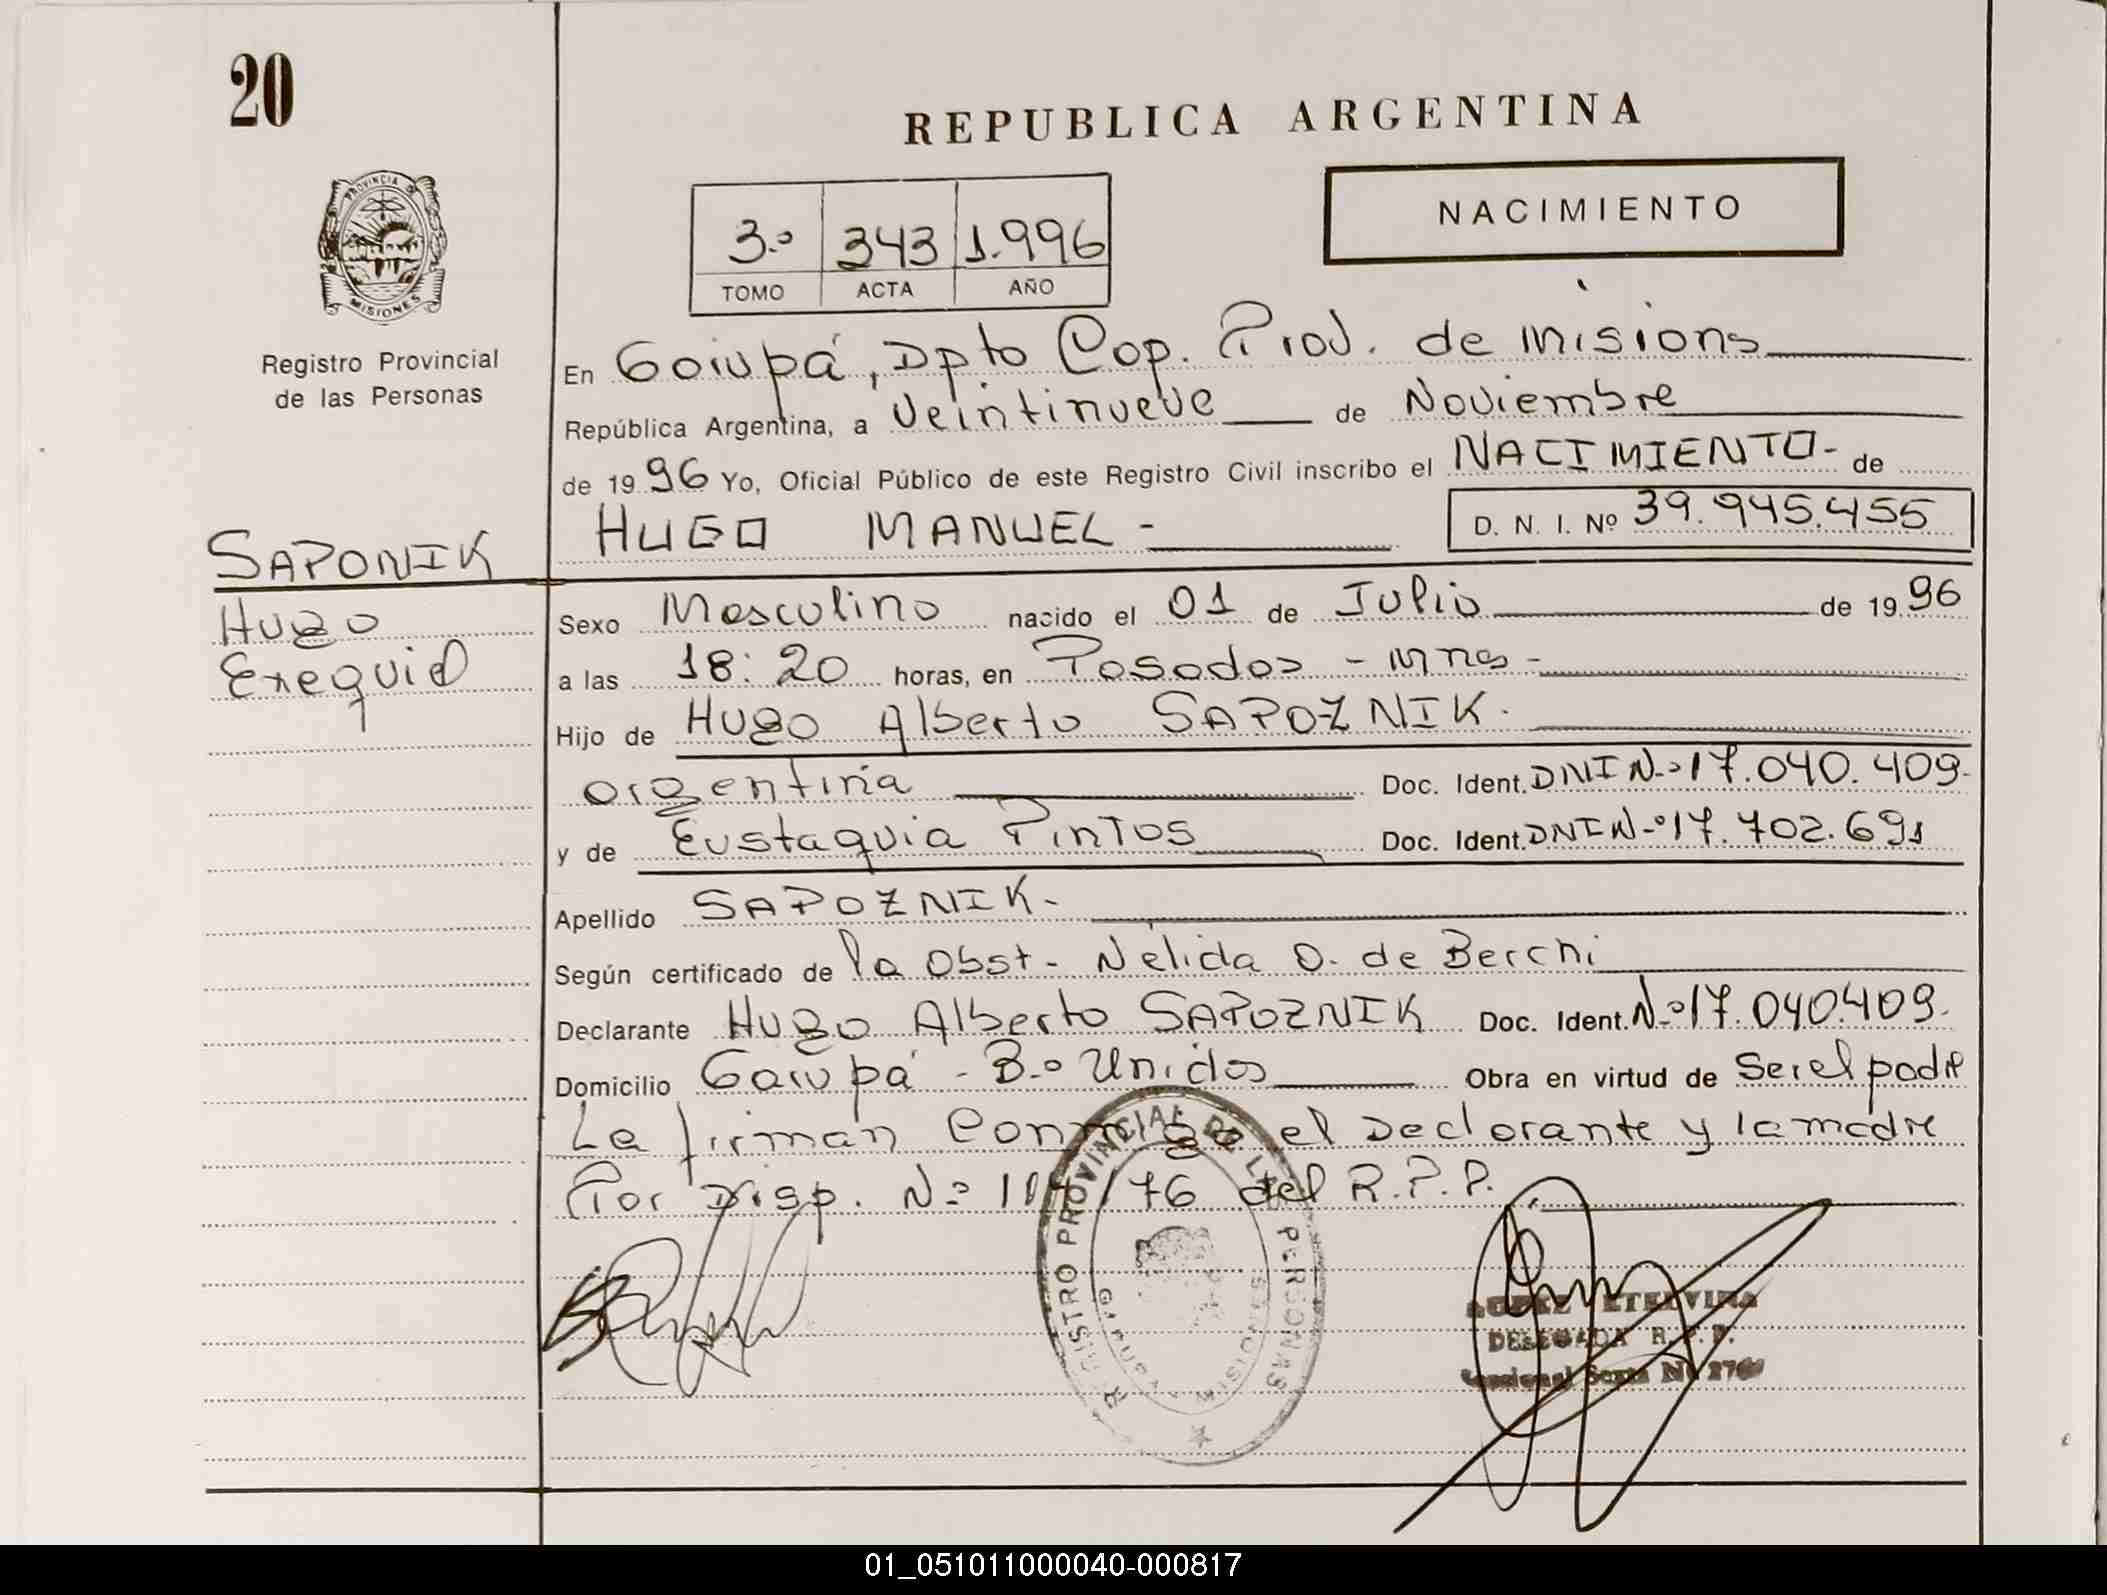 20
REPUBLICA ARGENTINA
PROVINCIA DE
MISIONES
Registro Provincial
de las Personas
3.º 343 1.996
TOMO ACTA AÑO
NACIMIENTO
En Garupá, Dpto Cap. Prov. de Misions
República Argentina, a Veintinueve de Noviembre
de 1996 Yo, Oficial Público de este Registro Civil inscribo el NACIMIENTO- de
HUGO MANUEL - D. N. I. Nº 39.945.455
SAPONIK
Hugo
Exequiel
Sexo Masculino nacido el 01 de Julio de 1996
a las 18:20 horas, en Posadas - Mnes -
Hijo de Hugo Alberto SAPOZNIK.
argentina Doc. Ident. DNI N.º 17.040.409-
y de Eustaquia PINTOS Doc. Ident. DNI N.º 17.702.691
Apellido SAPOZNIK-
Según certificado de la Obst- Nélida O. de Berchi
Declarante Hugo Alberto SAPOZNIK Doc. Ident. N.º 17.040.409.
Domicilio Garupá - B.º Unidos Obra en virtud de Ser el padre
La firman Conmigo el Declarante y la madre
Por Disp. N.º /76 del R.P.P.
REGISTRO PROVINCIAL DE LAS PERSONAS
GARUPA MISIONES
ETELVINA
DELEGADA R.P.P.
01_051011000040-000817